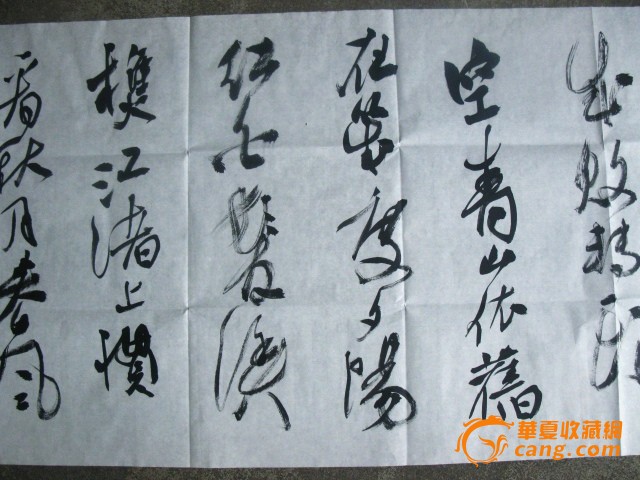 成敗轉頭
空青山依舊
在幾度夕陽
紅白髮漁
樵江渚上慣
看秋月春風
華夏收藏網
cang.com